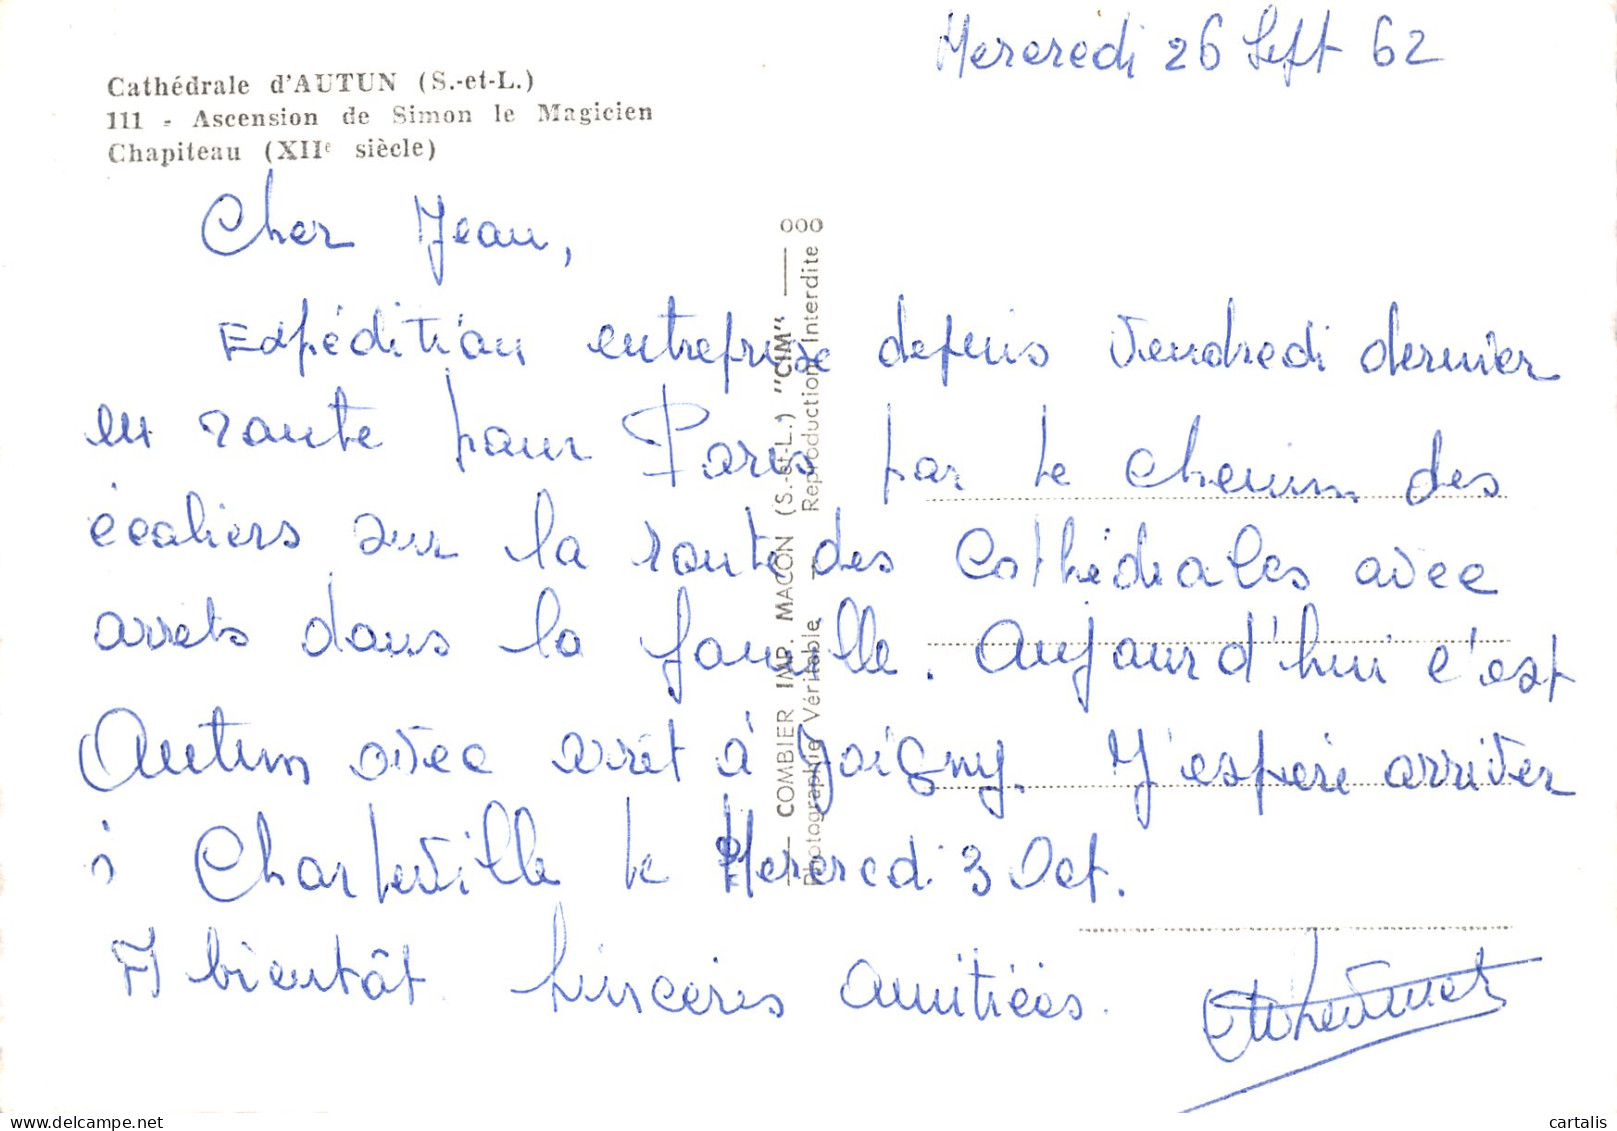 Mercredi 26 Sept 62
Cathédrale d'AUTUN (S.-et-L.)
111 - Ascension de Simon le Magicien
Chapiteau (XIIe siècle)
Cher Jean,
Expédition entreprise depuis Vendredi dernier
en route pour Paris par le chemin des
écoliers sur la route des Cathédrales avec
arrets dans la famille. Aujourd'hui c'est
Autun avec arrêt à Joigny. J'espère arriver
à Charleville le Mercredi 3 Oct.
A bientôt. Sincères Amitiées.
COMBIER IMP. MACON (S.-et-L.) "CIM"
Photographie Véritable - Reproduction Interdite
000
cartalis